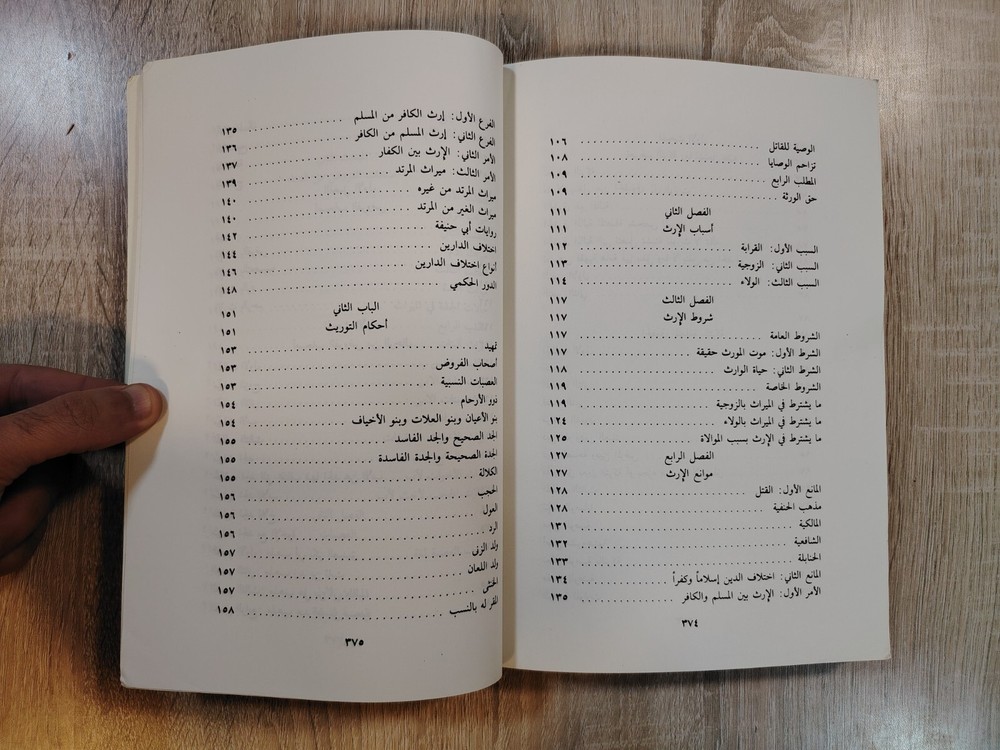 الوصية للقاتل ........ ١٠٦
تزاحم الوصايا ........ ١٠٨
المطلب الرابع ........ ١٠٩
حق الورثة ........ ١٠٩
الفصل الثاني ١١١
أسباب الإرث ١١١
السبب الأول: القرابة ........ ١١٢
السبب الثاني: الزوجية ........ ١١٣
السبب الثالث: الولاء ........ ١١٤
الفصل الثالث ١١٧
شروط الإرث ١١٧
الشروط العامة ........ ١١٧
الشرط الأول: موت المورث حقيقة ........ ١١٧
الشرط الثاني: حياة الوارث ........ ١١٨
الشروط الخاصة ........ ١١٩
ما يشترط في الميراث بالزوجية ........ ١١٩
ما يشترط في الميراث بالولاء ........ ١٢٤
ما يشترط في الإرث بسبب الموالاة ........ ١٢٥
الفصل الرابع ١٢٧
موانع الإرث ١٢٧
المانع الأول: القتل ........ ١٢٨
مذهب الحنفية ........ ١٢٨
المالكية ........ ١٣١
الشافعية ........ ١٣٢
الحنابلة ........ ١٣٣
المانع الثاني: اختلاف الدين إسلاماً وكفراً ........ ١٣٤
الأمر الأول: الإرث بين المسلم والكافر ........ ١٣٥
٣٧٤
الفرع الأول: إرث الكافر من المسلم ........ ١٣٥
الفرع الثاني: إرث المسلم من الكافر ........ ١٣٦
الأمر الثاني: الإرث بين الكفار ........ ١٣٧
الأمر الثالث: ميراث المرتد ........ ١٣٩
ميراث المرتد من غيره ........ ١٤٠
ميراث الغير من المرتد ........ ١٤٠
روايات أبي حنيفة ........ ١٤٢
اختلاف الدارين ........ ١٤٤
أنواع اختلاف الدارين ........ ١٤٦
الدور الحكمي ........ ١٤٨
الباب الثاني ١٥١
أحكام التوريث ١٥١
تمهيد ........ ١٥٣
أصحاب الفروض ........ ١٥٣
العصبات النسبية ........ ١٥٣
ذوو الأرحام ........ ١٥٤
بنو الأعيان وبنو العلات وبنو الأخياف ........ ١٥٤
الجد الصحيح والجد الفاسد ........ ١٥٥
الجدة الصحيحة والجدة الفاسدة ........ ١٥٥
الكلالة ........ ١٥٥
الحجب ........ ١٥٦
العول ........ ١٥٦
الرد ........ ١٥٦
ولد الزنى ........ ١٥٧
ولد اللعان ........ ١٥٧
الخنثى ........ ١٥٧
المقر له بالنسب ........ ١٥٨
٣٧٥